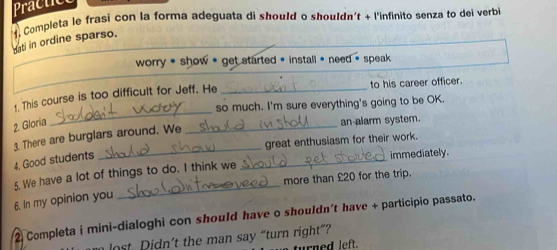 Practice
1. Completa le frasi con la forma adeguata di should o shouldn't + l'infinito senza to dei verbi
dati in ordine sparso.
worry • show • get started • install • need • speak
1. This course is too difficult for Jeff. He to his career officer.
2. Gloria shouldn't worry so much. I'm sure everything's going to be OK.
3. There are burglars around. We should install an alarm system.
4. Good students should show great enthusiasm for their work.
5. We have a lot of things to do. I think we should get started immediately.
6. In my opinion you shouldn't need more than £20 for the trip.
2. Completa i mini-dialoghi con should have o shouldn't have + participio passato.
lost. Didn't the man say “turn right”?
turned left.